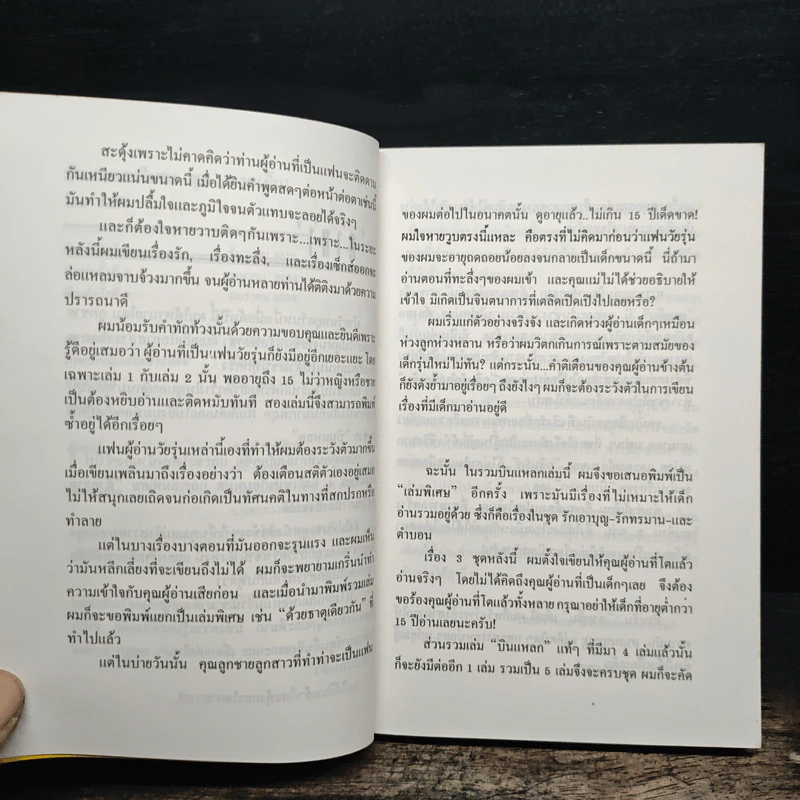 สะดุ้งเพราะไม่คาดคิดว่าท่านผู้อ่านที่เป็นแฟนจะติดตาม
กันเหนียวแน่นขนาดนี้ เมื่อได้ยินคำพูดสดๆต่อหน้าต่อตาเช่นนี้
มันทำให้ผมปลื้มใจและภูมิใจจนตัวแทบจะลอยได้จริงๆ
และก็ต้องใจหายวาบติดๆกันเพราะ...เพราะ...ในระยะ
หลังนี้ผมเขียนเรื่องรัก, เรื่องทะลึ่ง, และเรื่องเซ็กส์ออกจะ
ล่อแหลมจาบจ้วงมากขึ้น จนผู้อ่านหลายท่านได้ติติงมาด้วยความ
ปรารถนาดี
ผมน้อมรับคำทักท้วงนั้นด้วยความขอบคุณและยินดีเพราะ
รู้ดีอยู่เสมอว่า ผู้อ่านที่เป็นแฟนวัยรุ่นก็ยังมีอยู่อีกเยอะแยะ โดย
เฉพาะเล่ม 1 กับเล่ม 2 นั้น พออายุถึง 15 ไม่ว่าหญิงหรือชาย
เป็นต้องหยิบอ่านและติดหนับทันที สองเล่มนี้จึงสามารถพิมพ์
ซ้ำอยู่ได้อีกเรื่อยๆ
แฟนผู้อ่านวัยรุ่นเหล่านี้เองที่ทำให้ผมต้องระวังตัวมากขึ้น
เมื่อเขียนเพลินมาถึงเรื่องอย่างว่า ต้องเตือนสติตัวเองอยู่เสมอ
ไม่ให้สนุกเลยเถิดจนก่อเกิดเป็นทัศนคติในทางที่สกปรกหรือ
ทำลาย
แต่ในบางเรื่องบางตอนที่มันออกจะรุนแรง และผมเห็น
ว่ามันหลีกเลี่ยงที่จะเขียนถึงไม่ได้ ผมก็จะพยายามเกริ่นนำทำ
ความเข้าใจกับคุณผู้อ่านเสียก่อน และเมื่อนำมาพิมพ์รวมเล่ม
ผมก็จะขอพิมพ์แยกเป็นเล่มพิเศษ เช่น “ด้วยธาตุเดียวกัน” ที่
ทำไปแล้ว
แต่ในบ่ายวันนั้น คุณลูกชายลูกสาวที่ทำท่าจะเป็นแฟน
ของผมต่อไปในอนาคตนั้น ดูอายุแล้ว..ไม่เกิน 15 ปีเด็ดขาด!
ผมใจหายวูบตรงนี้แหละ คือตรงที่ไม่คิดมาก่อนว่าแฟนวัยรุ่น
ของผมจะอายุถดถอยน้อยลงจนกลายเป็นเด็กขนาดนี้ นี่ถ้ามา
อ่านตอนที่ทะลึ่งๆของผมเข้า และคุณแม่ไม่ได้ช่วยอธิบายให้
เข้าใจ มิเกิดเป็นจินตนาการที่เตลิดเปิดเปิงไปเลยหรือ?
ผมเริ่มแก่ตัวอย่างจริงจัง และเกิดห่วงผู้อ่านเด็กๆเหมือน
ห่วงลูกห่วงหลาน หรือว่าผมวิตกเกินการณ์เพราะตามสมัยของ
เด็กรุ่นใหม่ไม่ทัน? แต่กระนั้น...คำติเตือนของคุณผู้อ่านข้างต้น
ก็ยังดังย้ำมาอยู่เรื่อยๆ ถึงยังไงๆ ผมก็จะต้องระวังตัวในการเขียน
เรื่องที่มีเด็กมาอ่านอยู่ดี
ฉะนั้น ในรวมบินแหลกเล่มนี้ ผมจึงขอเสนอพิมพ์เป็น
“เล่มพิเศษ” อีกครั้ง เพราะมันมีเรื่องที่ไม่เหมาะให้เด็ก
อ่านรวมอยู่ด้วย ซึ่งก็คือเรื่องในชุด รักเอาบุญ-รักทรมาน-และ
ตำบอน
เรื่อง 3 ชุดหลังนี้ ผมตั้งใจเขียนให้คุณผู้อ่านที่โตแล้ว
อ่านจริงๆ โดยไม่ได้คิดถึงคุณผู้อ่านที่เป็นเด็กๆเลย จึงต้อง
ขอร้องคุณผู้อ่านที่โตแล้วทั้งหลาย กรุณาอย่าให้เด็กที่อายุต่ำกว่า
15 ปีอ่านเลยนะครับ!
ส่วนรวมเล่ม “บินแหลก” แท้ๆ ที่มีมา 4 เล่มแล้วนั้น
ก็จะยังมีต่ออีก 1 เล่ม รวมเป็น 5 เล่มจึงจะครบชุด ผมก็จะคัด